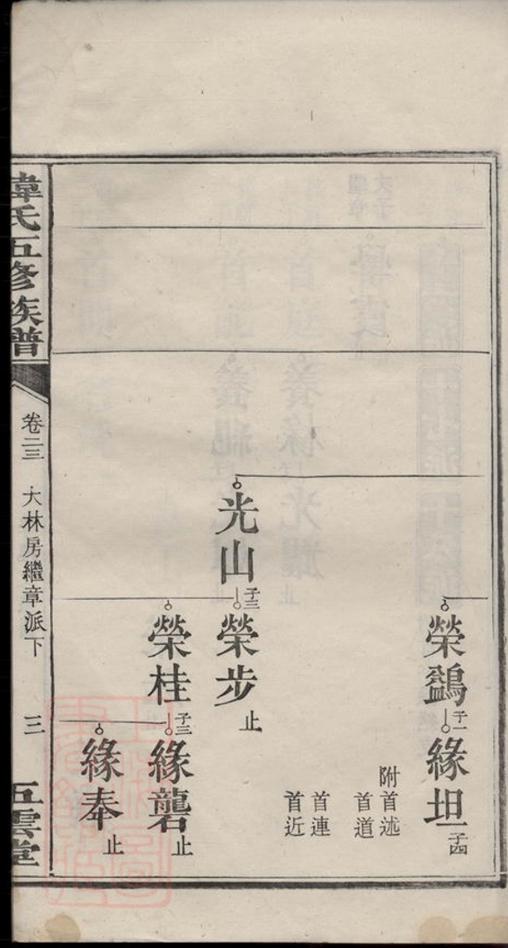 榮鷁子一緣坦子四
附首述
首道
首連
首近
光山子三榮步止
榮桂子三緣礱止
緣奉止
韋氏五修族譜
卷二三 大林房繼章派下 三
五雲堂